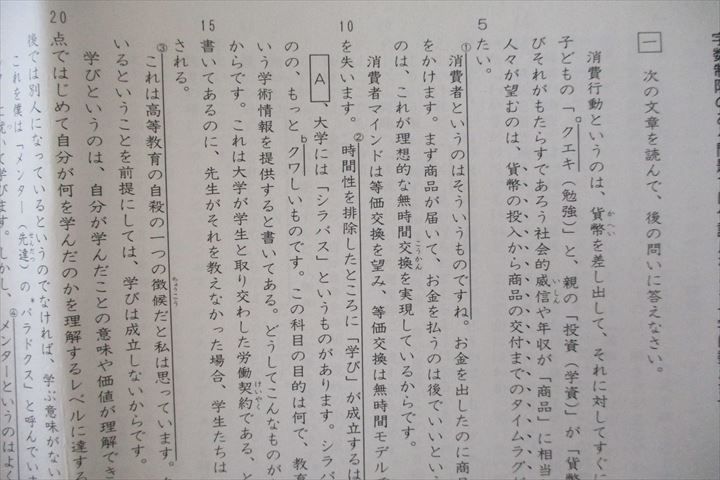 一 次の文章を読んで、後の問いに答えなさい。
消費行動というのは、貨幣を差し出して、それに対してすぐに
子どもの「a クエキ（勉強）」と、親の「投資（学資）」が「貨幣
びそれがもたらすであろう社会的威信や年収が「商品」に相当
人々が望むのは、貨幣の投入から商品の交付までのタイムラグが
5 たい。
①消費者というのはそういうものですね。お金を出したのに商品
をかけます。まず商品が届いて、お金を払うのは後でいいとい
のは、これが理想的な無時間交換を実現しているからです。
消費者マインドは等価交換を望み、等価交換は無時間モデルで
10 を失います。②時間性を排除したところに「学び」が成立するは
A 、大学には「シラバス」というものがあります。シラバ
のの、もっと b クワしいものです。この科目の目的は何で、教育
いう学術情報を提供すると書いてある。どうしてこんなものが
からです。これは大学が学生と取り交わした労働契約である、と
15 書いてあるのに、先生がそれを教えなかった場合、学生たちは
される。
③これは高等教育の自殺の一つの徴候だと私は思っています。
いるということを前提にしては、学びは成立しないからです。
学びというのは、自分が学んだことの意味や価値が理解でき
20 点ではじめて自分が何を学んだのかを理解するレベルに達する
後では別人になっているというのでなければ、学ぶ意味がない
これを僕は「メンター（先達）の*パラドクス」と呼んでいま
て学びます。しかし、④メンターというのはよく